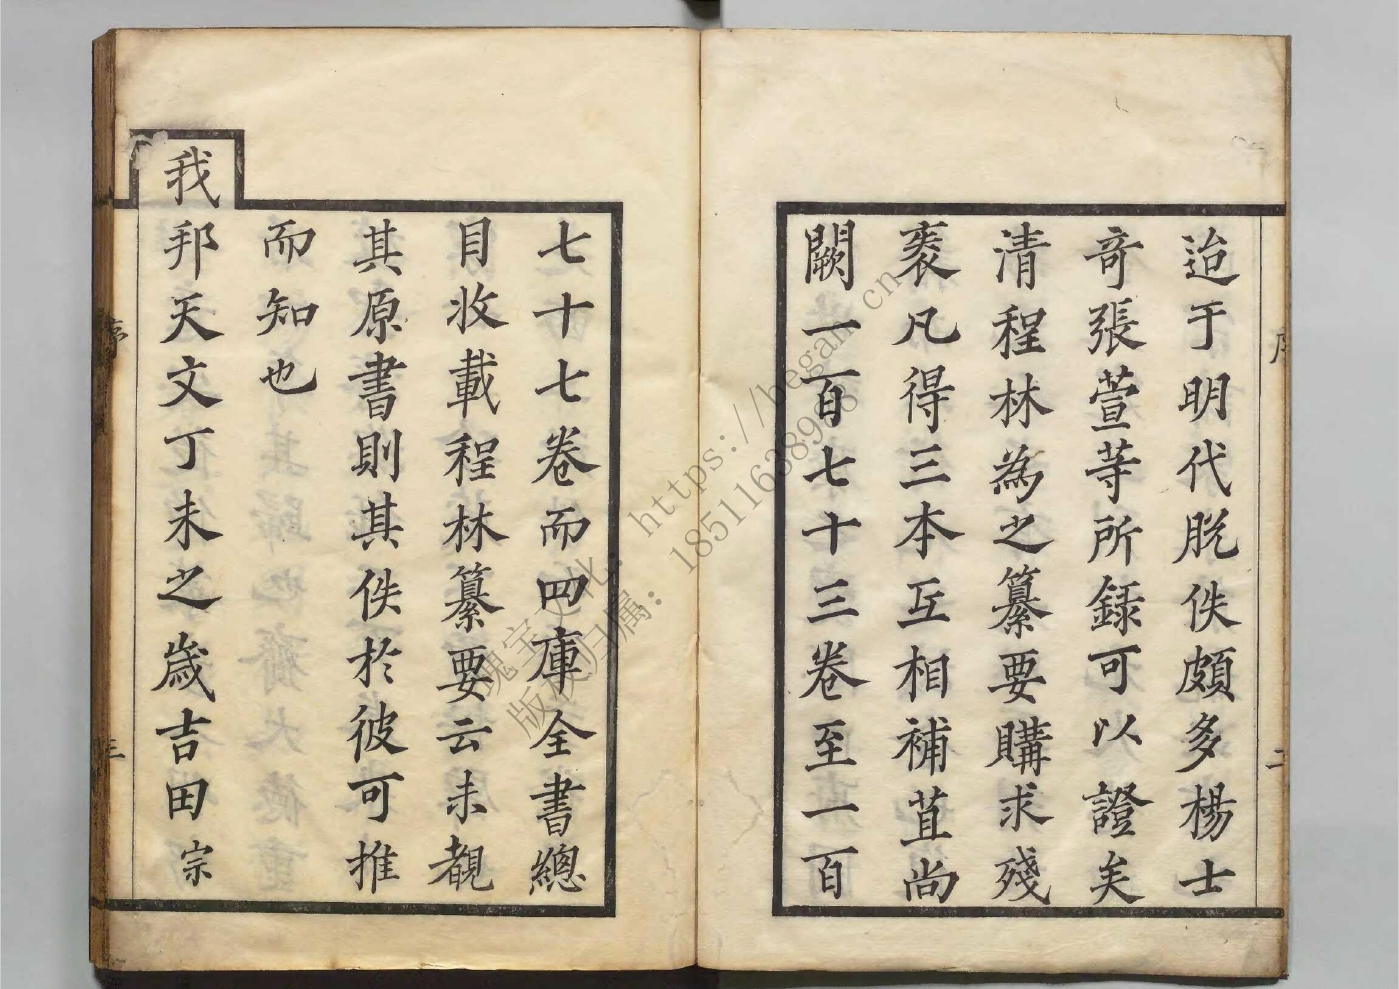 迨于明代脫佚頗多楊士
奇張萱等所録可以證矣
清程林為之纂要購求殘
袠凡得三本互相補苴尚
闕一百七十三卷至一百
七十七卷而四庫全書總
目收載程林纂要云未覩
其原書則其佚於彼可推
而知也
我邦天文丁未之歳吉田宗
序
三
二
瑰宝文化：https://began.cn
版权归属：18511638988